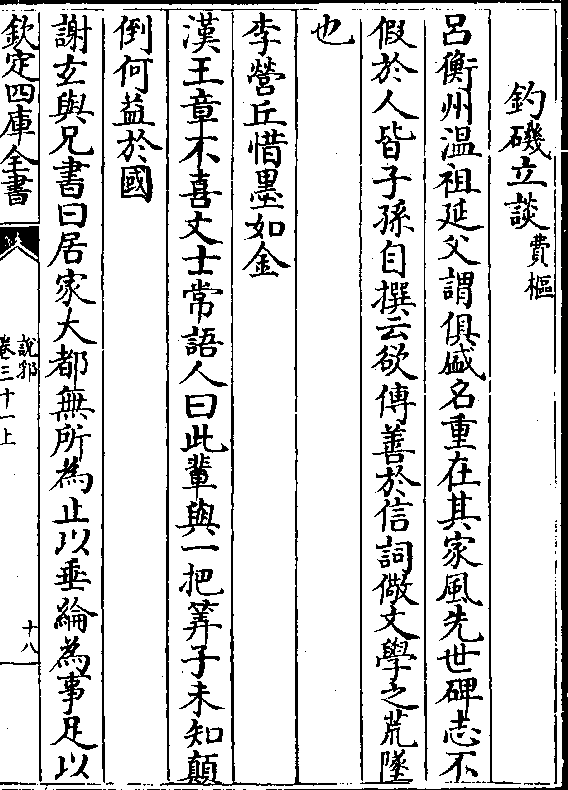 釣磯立談費樞
呂衡州溫祖延父謂俱盛名重在其家風先世碑志不
假於人皆子孫自撰云欲傳善於信詞儆文學之荒墜
也
李營丘惜墨如金
漢王章不喜文士常語人曰此輩與一把筭子未知顛
倒何益於國
謝玄與兄書曰居家大都無所為止以垂綸為事足以
欽定四庫全書
說郛
卷三十一上
十八